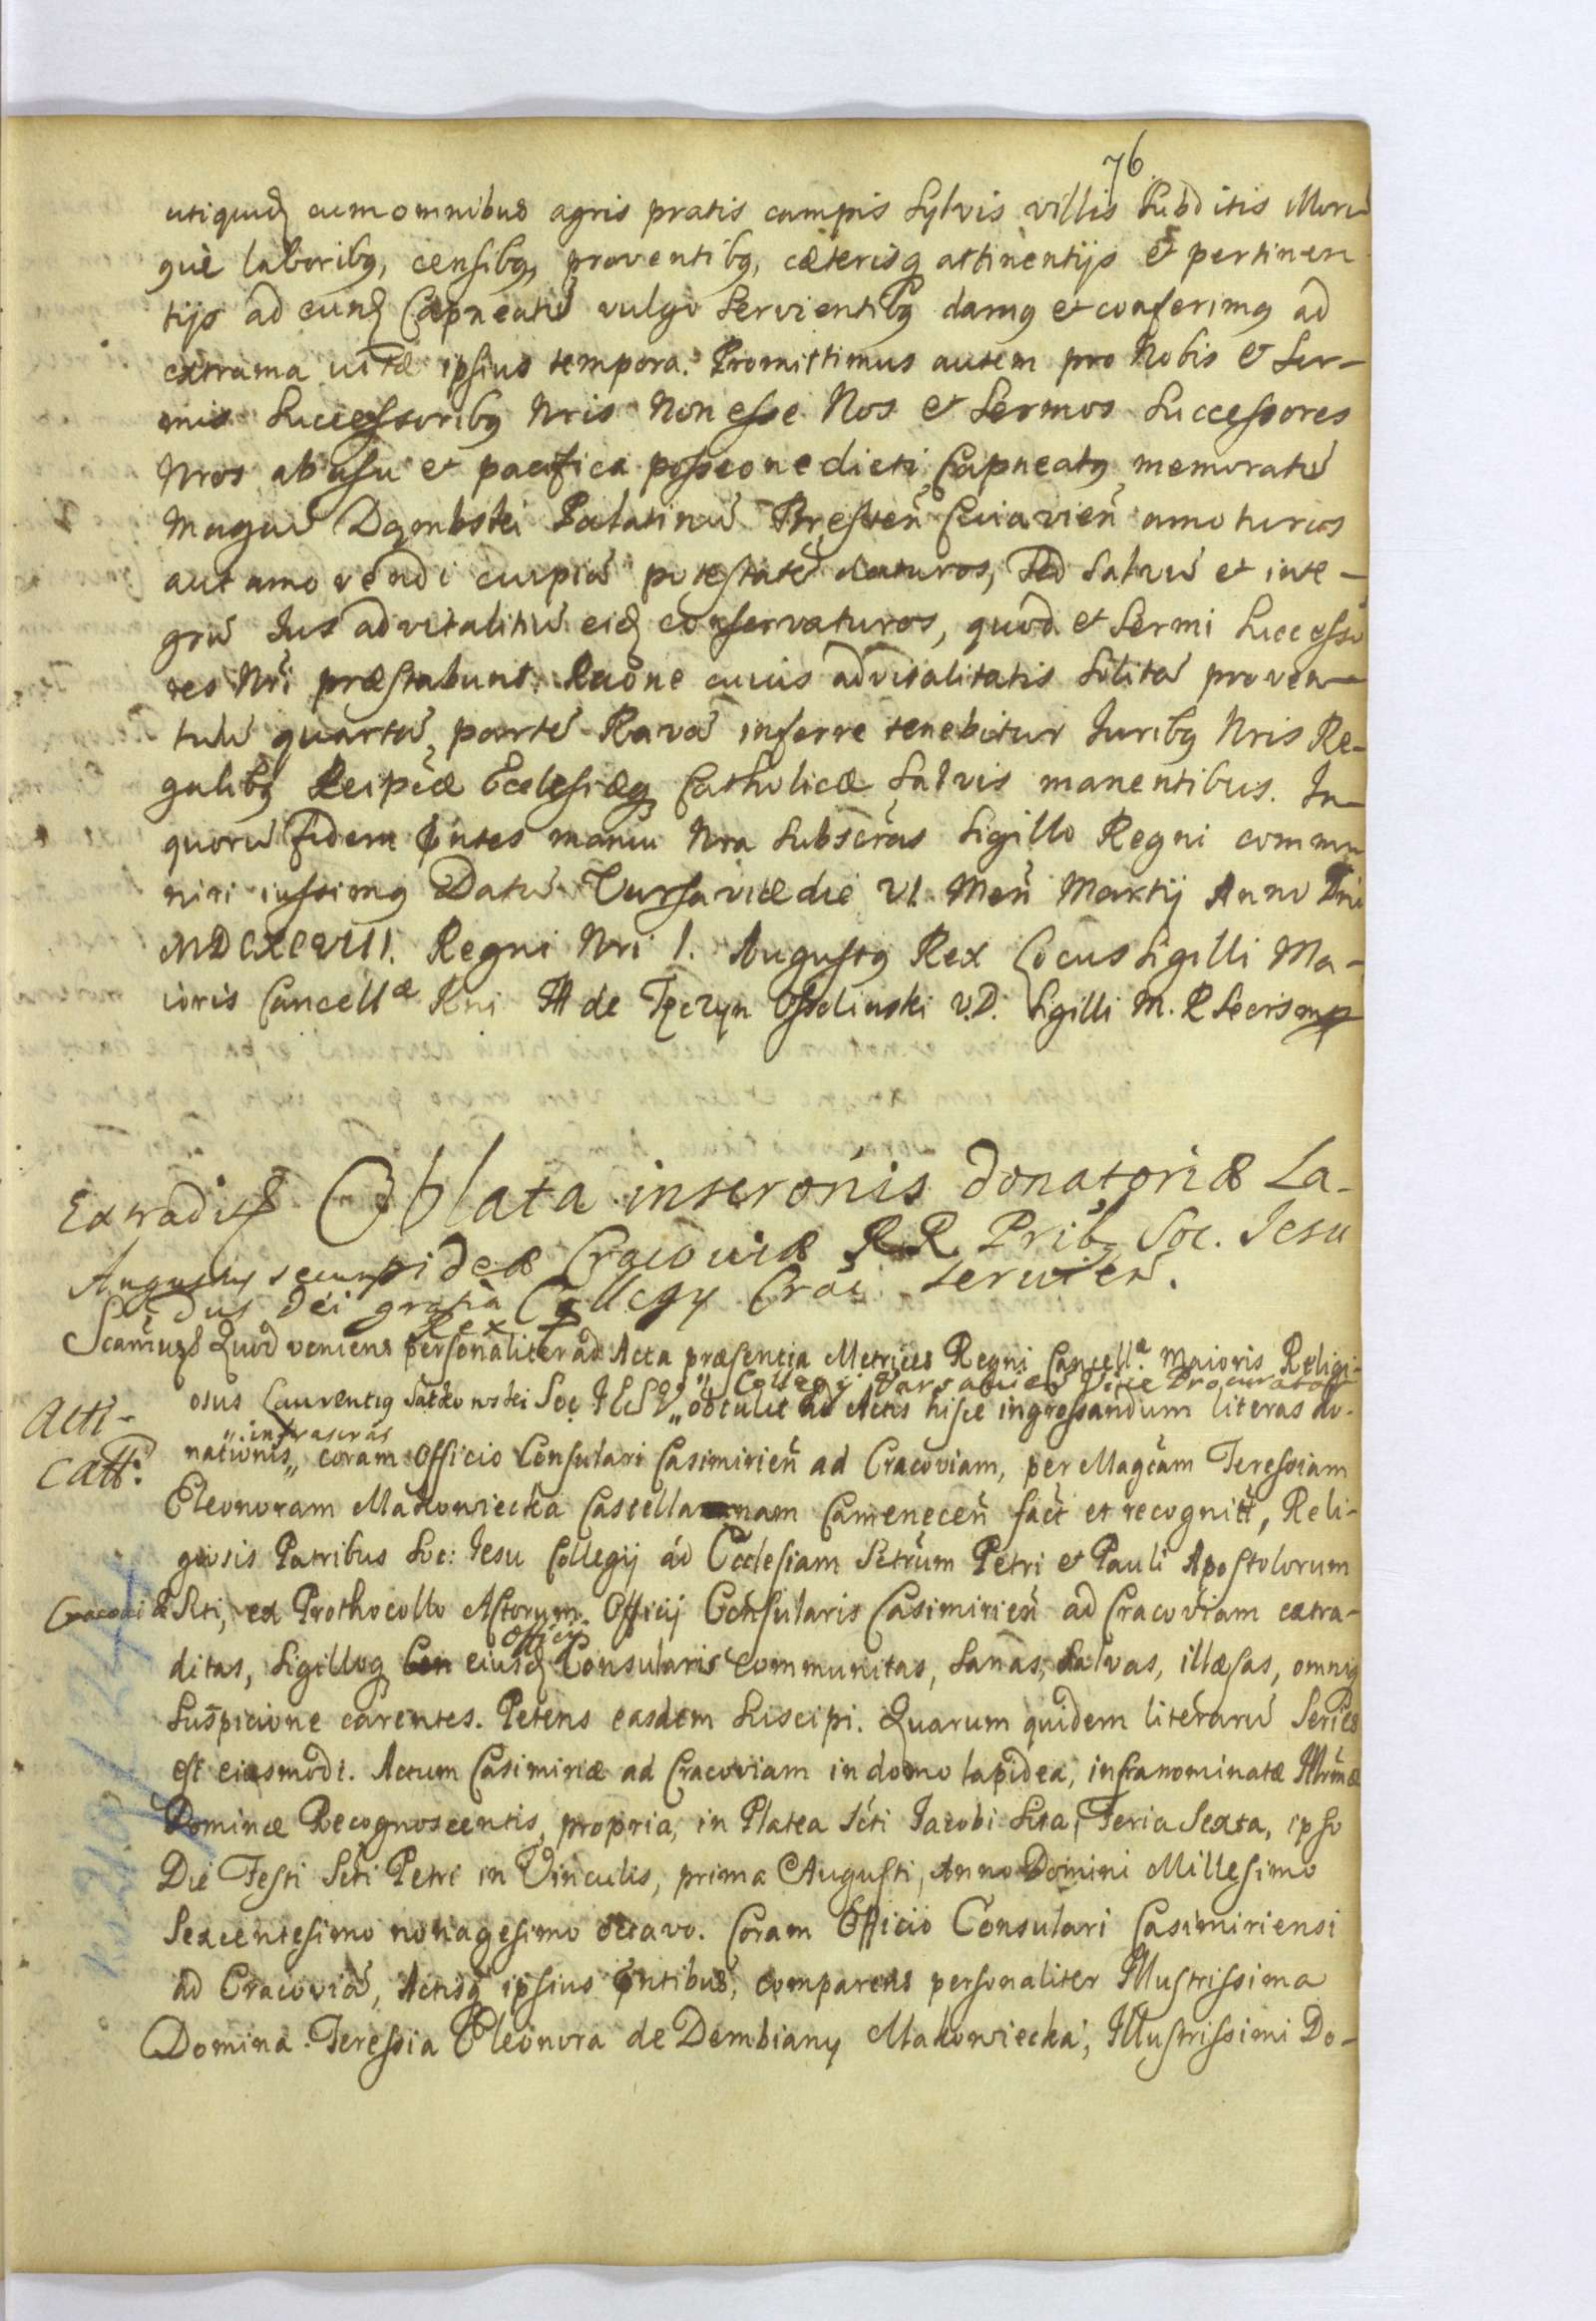 76
utiquid cum omnibus agris pratis campis Sylvis villis Subditis illoru
que laboribq, censibq, proventibq, cæterisq attinentijs et pertinen
tijs ad eund Capneatu vulgo Servientibq damq et conferimq ad
extrema vitæ ipsius tempora. Promittimus autem pro Nobis et Ser-
mis Successoribq Nris Non esse Nos et Sermos Successores
Nros ab usu et pacifica possione dicti Capneatq memoratu
Magcu Dąmbski Palatinu Bresten Cuiavien amoturos
aut amovendi cuipia potestate daturos, sed salvu et inte-
gru Jus advitalitiu eid conservaturos, quod et Sermi Successo
res Nri præstabunt. Raone cuius advitalitatis Solita proven-
tuu quarta parte Rava inferre tenebitur Juribq Nris Re-
galibq Reipcæ Ecclesiæq Catholicæ Salvis manentibus. In
quoru fidem pntes manu Nra Subscras Sigillo Regni commu
niri iussimq Datu Varsaviæ die VI. Men Martij Anno Dni
MDCXCVIII. Regni Nri I. Augustq Rex Locus Sigilli Ma-
ioris Cancellæ Rni M de Tęczyn Ossolinski V.D. Sigilli M. R Secris mp
Extradit Oblata inscronis donatoriæ La-
pideæ Cracoviæ RR Pribq Soc. Jesu
Augustus secun
Collegy Crac. servien.
dus Dei gratia
Rex
Scamus Quod veniens personaliter ad Acta præsentia Metrices Regni Cancellæ Maioris Religi-
„Collegij Varsavien Vice Procurator
osus Laurentiq Satkowski Soc JESV „ obtulit ad Actis hisce ingrossandum literas do-
Acti-
catt:
„infrascras
nationis„ coram Officio Consulari Casimirien ad Cracoviam, per Magcam Teressiam
Eleonoram Makowiecka Castellanam Camenecen fact et recognitt, Reli-
giosis Patribus Soc: Jesu Collegij ad Ecclesiam Sctrum Petri et Pauli Apostolorum
Cracoviæ Siti, ex Prothocollo Actorum Officij Consularis Casimirien ad Cracoviam extra-
Officij
ditas, Sigilloq eiusd Consularis communitas, Sanas, Salvas, illæsas, omniq
Suspicione carentes. Petens easdem Suscipi. Quarum quidem literaru Series
est eiusmodi. Actum Casimiriæ ad Cracoviam in domo lapidea, infranominatæ Illrmæ
Dominæ Recognoscentis, propria, in Platea Scti Jacobi Sita, Feria Sexta, ipso
Die Festi Scti Petri in Vinculis, prima Augusti, Anno Domini Millesimo
Sexcentesimo nonagesimo octavo. Coram Officio Consulari Casimiriensi
ad Cracovia, Actisq ipsius pntibus, comparens personaliter Illustrissima
Domina Teressia Eleonora de Dembiany Makowiecka, Illustrissimi Do-